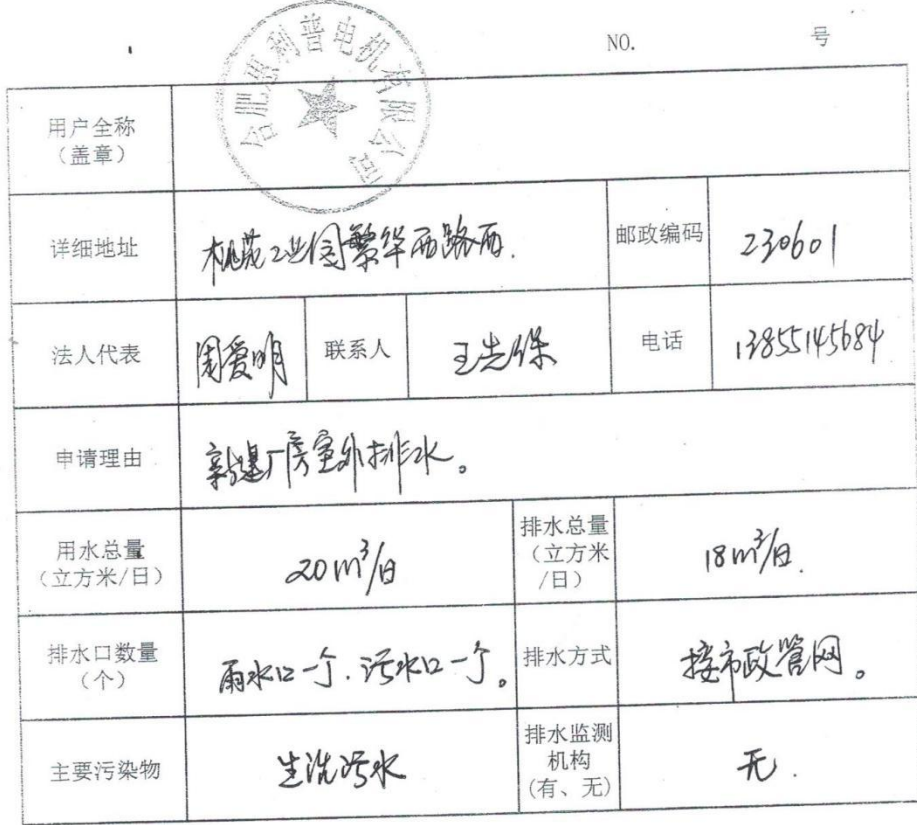 NO. 号
合肥惠利普电机有限公司
用户全称
（盖章）
详细地址 桃花工业园繁华西路西. 邮政编码 230601
法人代表 周爱明 联系人 王先保 电话 13855145684
申请理由 新建厂房室外排水。
用水总量
（立方米/日） 20m³/日
排水总量
（立方米
/日） 18m³/日.
排水口数量
（个） 雨水口一个.污水口一个。 排水方式 接市政管网。
主要污染物 生活污水
排水监测
机构
(有、无) 无.